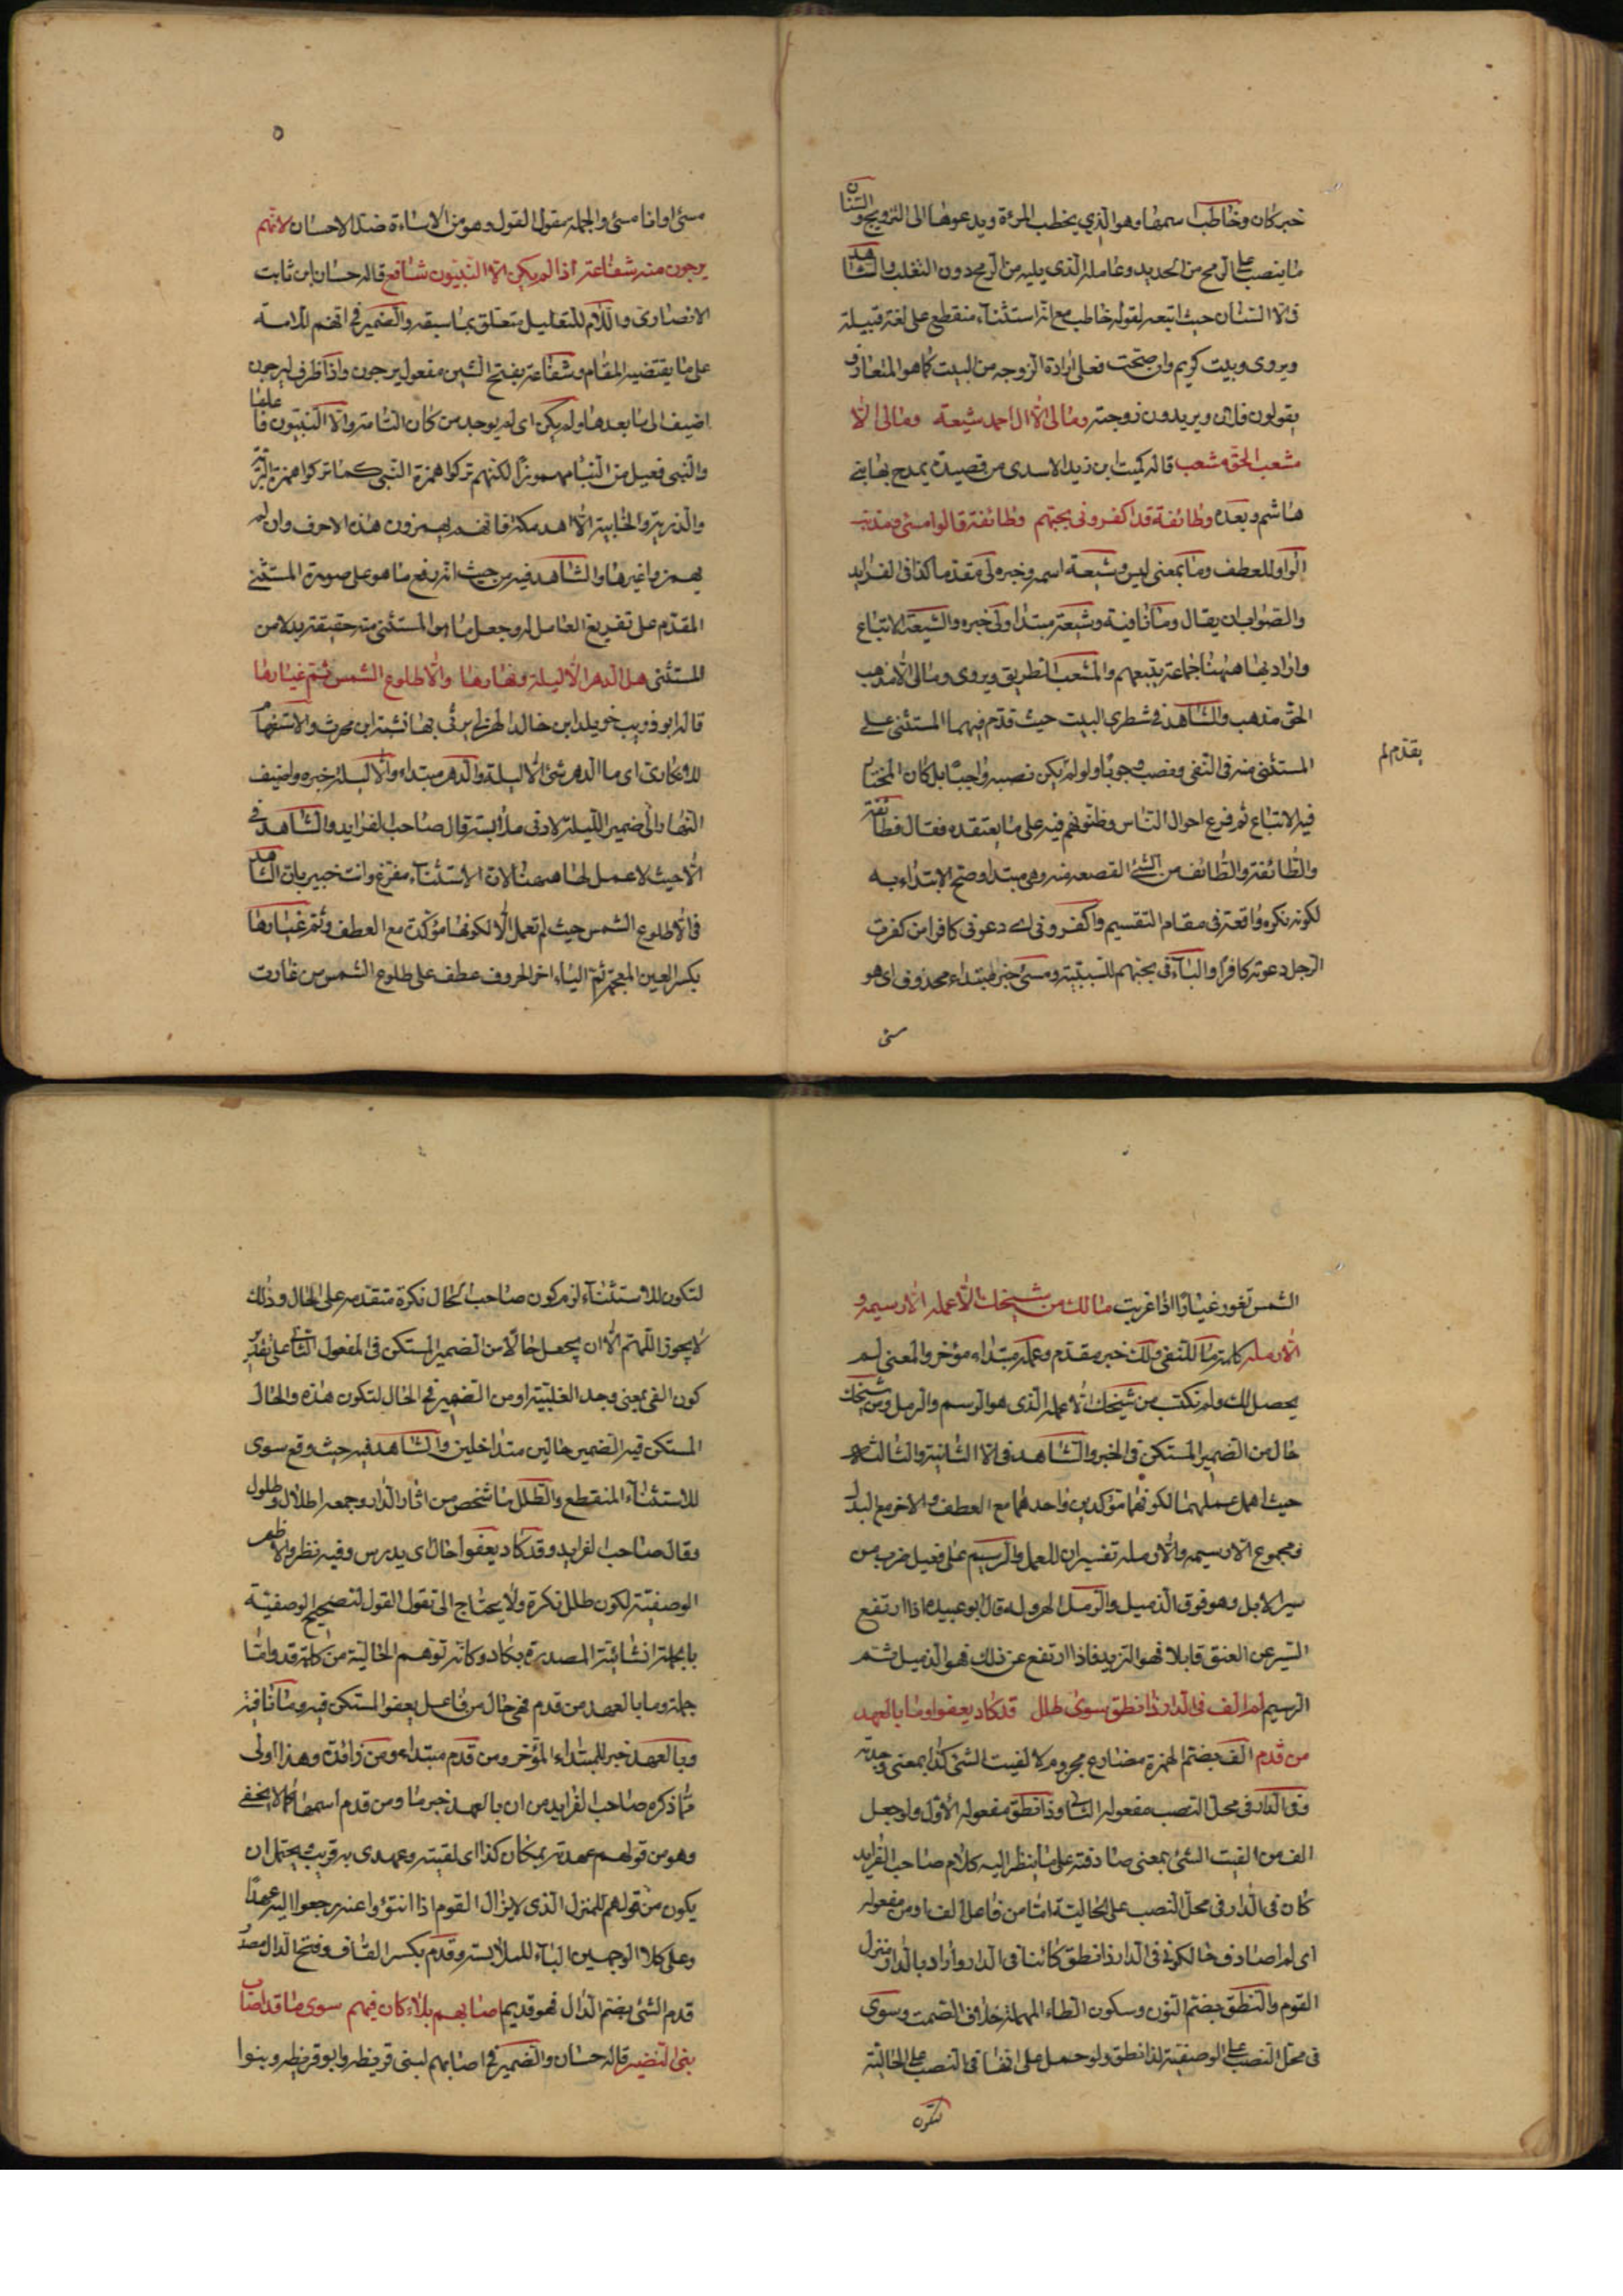 خبر كان وخاطبا سمها وهو الذي يخطب المرءة ويدعوها الى التزويج والسنان
ما ينصب على الرمح من الحديد وعامله الذي يليه من الرمح دون الثعلب والشاهد
فى الا السنان حيث اتبعه لقوله خاطب مع انه استثناء منقطع على لغة قبيلة
ويروى وبيت كريم وان صحت فعلى ارادة الزوجه من البيت كما هو المتعارف
يقولون فلان ويريدون زوجته ومالى الا ال احمد شيعة ومالى الا
مشعب الحق مشعب قاله كميت ابن زيد الاسدى من قصيدة يمدح بها بنى
هاشم وبعده وطائفة قد اكفرونى بحبهم وطائفة قالوا مسئ ومذنب
الواو للعطف وما بمعنى ليس وشيعة اسمه وخبره لى مقدما كذا فى الفرايد
والصواب ان يقال وما نافية وشيعة مبتدا ولى خبره والشيعة الاتباع
واراد بها ههنا جماعة يتبعهم والمشعب الطريق ويروى ومالى الا مذهب
الحق مذهب والشاهد فى شطرى البيت حيث قدم فيهما المستثنى على
المستثنى منه فى النفى ونصب وجوبا ولو لم يكن نصبه واجبا بل كان المختار
يقدم لم
فيه الاتباع ثم فرع احوال الناس وظنونهم فيه على ما يعتقده فقال فطائفة
والطائفة والطائف من الشئ القصعه منه وهى مبتدا وصح الابتداء به
لكونه نكره واقعة فى مقام التقسيم واكفرونى اے دعونى كافرا من كفرت
الرجل دعوته كافرا والباء فى بحبهم للسببية ومسئ خبر لمبتداء محذوف اى هو
مسئ
٥
مسئ او انا مسئ والجملة مقول القول وهو من الاساءة ضد الاحسان لانهم
يرجون منه شفاعة اذا لم يكن الا النبيون شافع قاله حسان ابن ثابت
الانصارى واللام للتعليل متعلق بما سبقه والضمير فى انهم للامة
على ما يقتضيه المقام وشفاعة بفتح الشين مفعول يرجون واذا ظرف ليرجون
اضيف الى ما بعدها ولم يكن اى لم يوجد من كان التامة والا النبيون فاعلها
والنبى فعيل من النبا مهموزا لكنهم تركوا همزة النبى كما تركوا همزة البرية
والذرية والخابية الا اهد مكة فانهم يهمزون هذه الاحرف وان لم
يهمزوا غيرها والشاهد فيه من حيث انه رفع ما هو على صورة المستثنى
المقدم على تفريغ العامل له وجعل ما هو المستثنى منه حقيقة بدلا من
المستثنى هل الدهر الا ليلة ونهارها والا طلوع الشمس ثم غيارها
قاله ابو ذويب خويلد ابن خالد الهذلى يرثى بها نشيبة ابن محرث والاستفهام
للانكارى اى ما الدهر شئ الا ليلة والدهر مبتداء والا ليلة خبره واضيف
النهار الى ضمير الليلة لادنى ملابسة وقال صاحب الفرايد والشاهد فى
الا حيث لا عمل لها ههنا لان الاستثناء مفرغ وانت خبير بان الشاهد
فى الا طلوع الشمس حيث لم تعمل الا لكونها مؤكدة مع العطف وثم غيارها
بكسر العين المعجمة ثم الياء اخر الحروف عطف على طلوع الشمس من غارت
الشمس تغور غيارا اذا غربت مالك من شيخك الا عمله الا رسيمه و
الا رمله كلمة ما للنفى ولك خبر مقدم وعمله مبتداء مؤخر والمعنى لم
يحصل لك ولم نكتب من شيخك الا عمله الذى هو الرسم والرمل ومن شيخك
حال من الضمير المستكن فى الخبر والشاهد فى الا الثانية والثالثة
حيث اهمل عملهما لكونها مؤكدين واحدهما مع العطف والاخر مع البدل
ومجموع الا رسيمه والا رمله تفسيران للعمل والرسيم على فعيل ضرب من
سير الابل وهو فوق الذميل والرمل الهروله قال ابو عبيدة اذا ارتفع
السير عن العنق قليلا فهو التزيد فاذا ارتفع عن ذلك فهو الذميل ثم
الرسيم لم الف فى الدار ذا نطق سوى طلل قد كاد يعفو وما بالعهد
من قدم الف بضم الهمزة مضارع مجزوم لالفيت الشئ كذا بمعنى وجدته
وفى الدار فى محل النصب مفعوله الثانى وذا نطق مفعوله الاول ولو جعل
الف من الفيت الشئ بمعنى صادفته على ما ينظر اليه كلام صاحب الفرايد
كان فى الدار فى محل النصب على الحالية اما من فاعل الف او من مفعوله
اى لم اصادف حالكونى فى الدار ذا نطق كائنا فى الدار واراد بالدار منزل
القوم والنطق بضم النون وسكون الطاء المهملة خلاف الصمت وسوى
فى محل النصب على الوصفية لذا نطق ولو حمل على انها فى النصب على الحالية
لتكون
لتكون للاستثناء لزم كون صاحب الحال نكرة متقدمه على الحال وذلك
لا يجوز اللهم الا ان يجعل حالا من الضمير المستكن فى المفعول الثانى على تقدير
كون الفى بمعنى وجد الغلبية او من الضمير فى الحال لتكون هذه والحال
المستكن فيه الضمير حالين متداخلين والشاهد فيه حيث وقع سوى
للاستثناء المنقطع والطلل ما شخص من اثار الدار وجمعه اطلال وطلول
وقال صاحب الفرايد وقد كاد يعفو حال اى يدرس وفيه نظر والاظهر
الوصفية لكون طلل نكرة ولا يحتاج الى تقول القول لتصحيح الوصفية
بالجملة انشائية المصدرة بكاد وكانه توهم الحالية من كلمة قد واما
جملة وما بالعهد من قدم فهى حال من فاعل يعفو المستكن فيه وما نافية
وبالعهد خبر للمبتداء المؤخر ومن قدم مبتداء ومن زائدة وهذا اولى
مما ذكره صاحب الفرايد من ان بالعهد خبر ما ومن قدم اسمها كما لا يخفى
وهو من قولهم عهدته بمكان كذا اى لقيته وعهدى به قريب ويحتمل ان
يكون من قولهم للمنزل الذى لا يزال القوم اذا انتؤوا عنه رجعوا اليه عهدا
وعلى كلا الوجهين البناء للملابسة وقدم بكسر القاف وفتح الدال مصدر
قدم الشئ بضم الدال فهو قديم اصابهم بلاء كان فيهم سوى ما قد اصاب
بنى النضير قاله حسان والضمير فى اصابهم لبنى قريظه وابو قريظه وبنوا